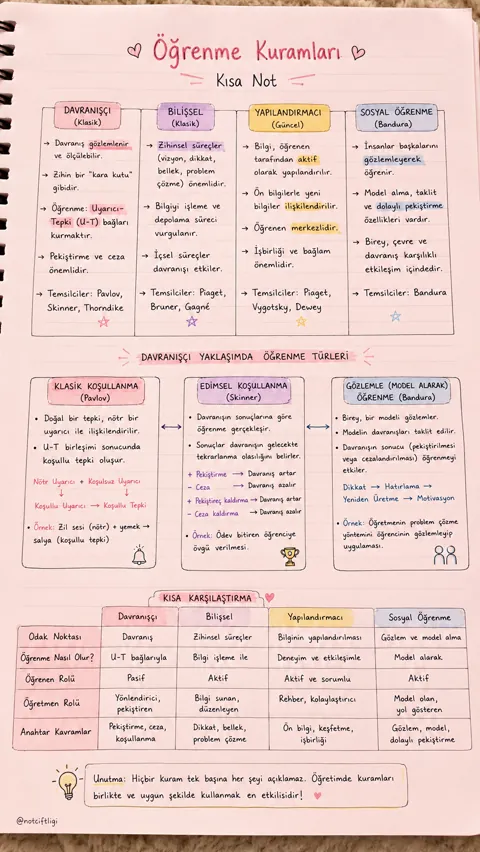 Öğrenme Kuramları
Kısa Not
DAVRANIŞÇI
(Klasik)
→ Davranış gözlemlenir
ve ölçülebilir.
→ Zihin bir "kara kutu"
gibidir.
→ Öğrenme: Uyarıcı-
Tepki (U-T) bağları
kurmaktır.
→ Pekiştirme ve ceza
önemlidir.
→ Temsilciler: Pavlov,
Skinner, Thorndike
BİLİŞSEL
(Klasik)
→ Zihinsel süreçler
(vizyon, dikkat,
bellek, problem
çözme) önemlidir.
→ Bilgiyi işleme ve
depolama süreci
vurgulanır.
→ İçsel süreçler
davranışı etkiler.
→ Temsilciler: Piaget,
Bruner, Gagné
YAPILANDIRMACI
(Güncel)
→ Bilgi, öğrenen
tarafından aktif
olarak yapılandırılır.
→ Ön bilgilerle yeni
bilgiler ilişkilendirilir.
→ Öğrenen merkezlidir.
→ İşbirliği ve bağlam
önemlidir.
→ Temsilciler: Piaget,
Vygotsky, Dewey
SOSYAL ÖĞRENME
(Bandura)
→ İnsanlar başkalarını
gözlemleyerek
öğrenir.
→ Model alma, taklit
ve dolaylı pekiştirme
özellikleri vardır.
→ Birey, çevre ve
davranış karşılıklı
etkileşim içindedir.
→ Temsilciler: Bandura
DAVRANIŞÇI YAKLAŞIMDA ÖĞRENME TÜRLERİ
KLASİK KOŞULLANMA
(Pavlov)
• Doğal bir tepki, nötr bir
uyarıcı ile ilişkilendirilir.
• U-T birleşimi sonucunda
koşullu tepki oluşur.
Nötr Uyarıcı + Koşulsuz Uyarıcı
↓ ↓
Koşullu Uyarıcı → Koşullu Tepki
• Örnek: Zil sesi (nötr) + yemek →
salya (koşullu tepki)
EDİMSEL KOŞULLANMA
(Skinner)
• Davranışın sonuçlarına göre
öğrenme gerçekleşir.
• Sonuçlar davranışın gelecekte
tekrarlanma olasılığını belirler.
+ Pekiştirme → Davranış artar
- Ceza → Davranış azalır
+ Pekiştireç kaldırma → Davranış artar
- Ceza kaldırma → Davranış azalır
• Örnek: Ödev bitiren öğrenciye
övgü verilmesi.
GÖZLEMLE (MODEL ALARAK)
ÖĞRENME (Bandura)
• Birey, bir modeli gözlemler.
• Modelin davranışları taklit edilir.
• Davranışın sonucu (pekiştirilmesi
veya cezalandırılması) öğrenmeyi
etkiler.
Dikkat → Hatırlama →
Yeniden Üretme → Motivasyon
• Örnek: Öğretmenin problem çözme
yöntemini öğrencinin gözlemleyip
uygulaması.
KISA KARŞILAŞTIRMA
Davranışçı Bilişsel Yapılandırmacı Sosyal Öğrenme
Odak Noktası Davranış Zihinsel süreçler Bilginin yapılandırılması Gözlem ve model alma
Öğrenme Nasıl Olur? U-T bağlarıyla Bilgi işleme ile Deneyim ve etkileşimle Model alarak
Öğrenen Rolü Pasif Aktif Aktif ve sorumlu Aktif
Öğretmen Rolü Yönlendirici, pekiştiren Bilgi sunan, düzenleyen Rehber, kolaylaştırıcı Model olan, yol gösteren
Anahtar Kavramlar Pekiştirme, ceza, koşullanma Dikkat, bellek, problem çözme Ön bilgi, keşfetme, işbirliği Gözlem, model, dolaylı pekiştirme
Unutma: Hiçbir kuram tek başına her şeyi açıklamaz. Öğretimde kuramları
birlikte ve uygun şekilde kullanmak en etkilisidir!
@notciftligi